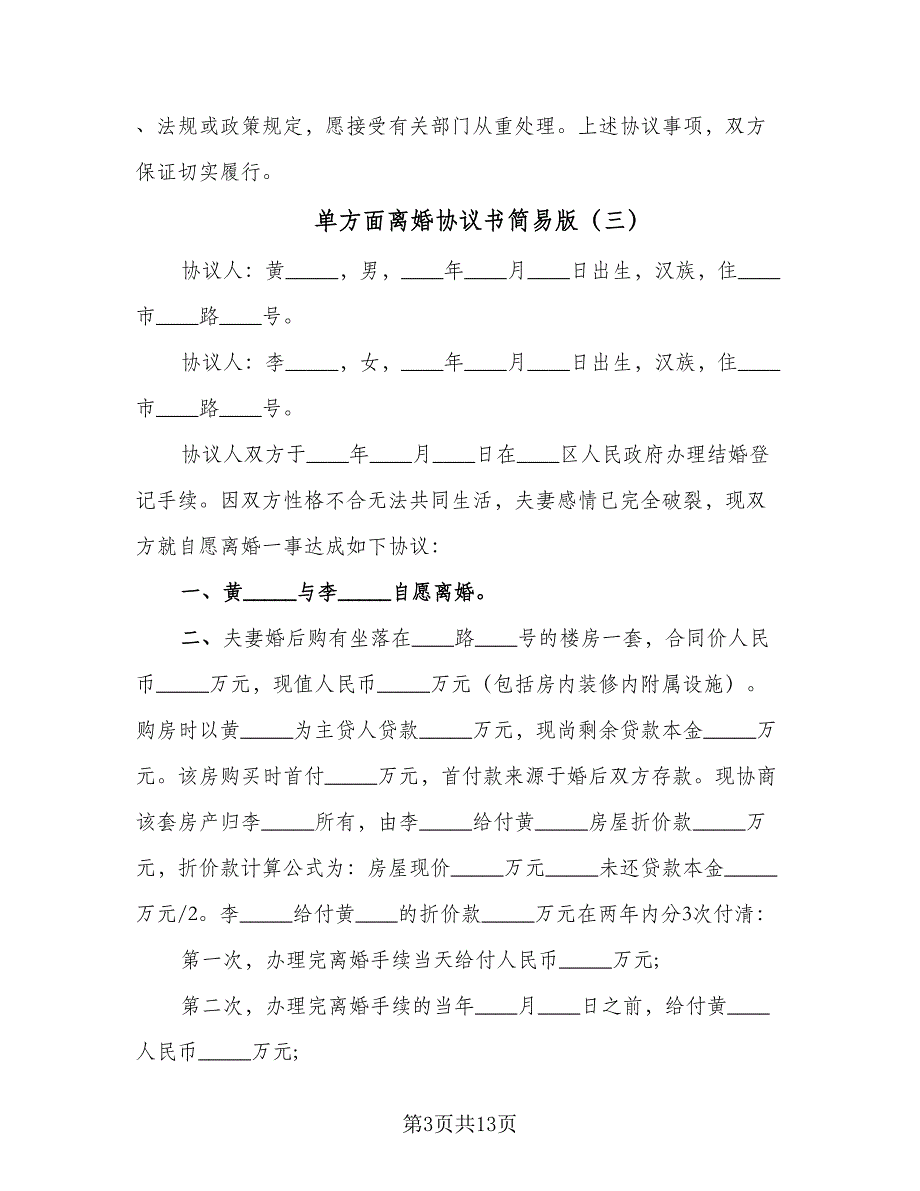 、法规或政策规定，愿接受有关部门从重处理。上述协议事项，双方
保证切实履行。
单方面离婚协议书简易版（三）
协议人：黄_____，男，____年____月____日出生，汉族，住____
市____路____号。
协议人：李_____，女，____年____月____日出生，汉族，住____
市____路____号。
协议人双方于____年____月____日在____区人民政府办理结婚登
记手续。因双方性格不合无法共同生活，夫妻感情已完全破裂，现双
方就自愿离婚一事达成如下协议：
一、黄_____与李_____自愿离婚。
二、夫妻婚后购有坐落在____路____号的楼房一套，合同价人民
币_____万元，现值人民币_____万元（包括房内装修内附属设施）。
购房时以黄_____为主贷人贷款_____万元，现尚剩余贷款本金_____万
元。该房购买时首付_____万元，首付款来源于婚后双方存款。现协商
该套房产归李_____所有，由李_____给付黄_____房屋折价款_____万
元，折价款计算公式为：房屋现价_____万元_____未还贷款本金_____
万元/2。李_____给付黄____的折价款_____万元在两年内分3次付清：
第一次，办理完离婚手续当天给付人民币_____万元;
第二次，办理完离婚手续的当年____月____日之前，给付黄____
人民币_____万元;
第3页共13页